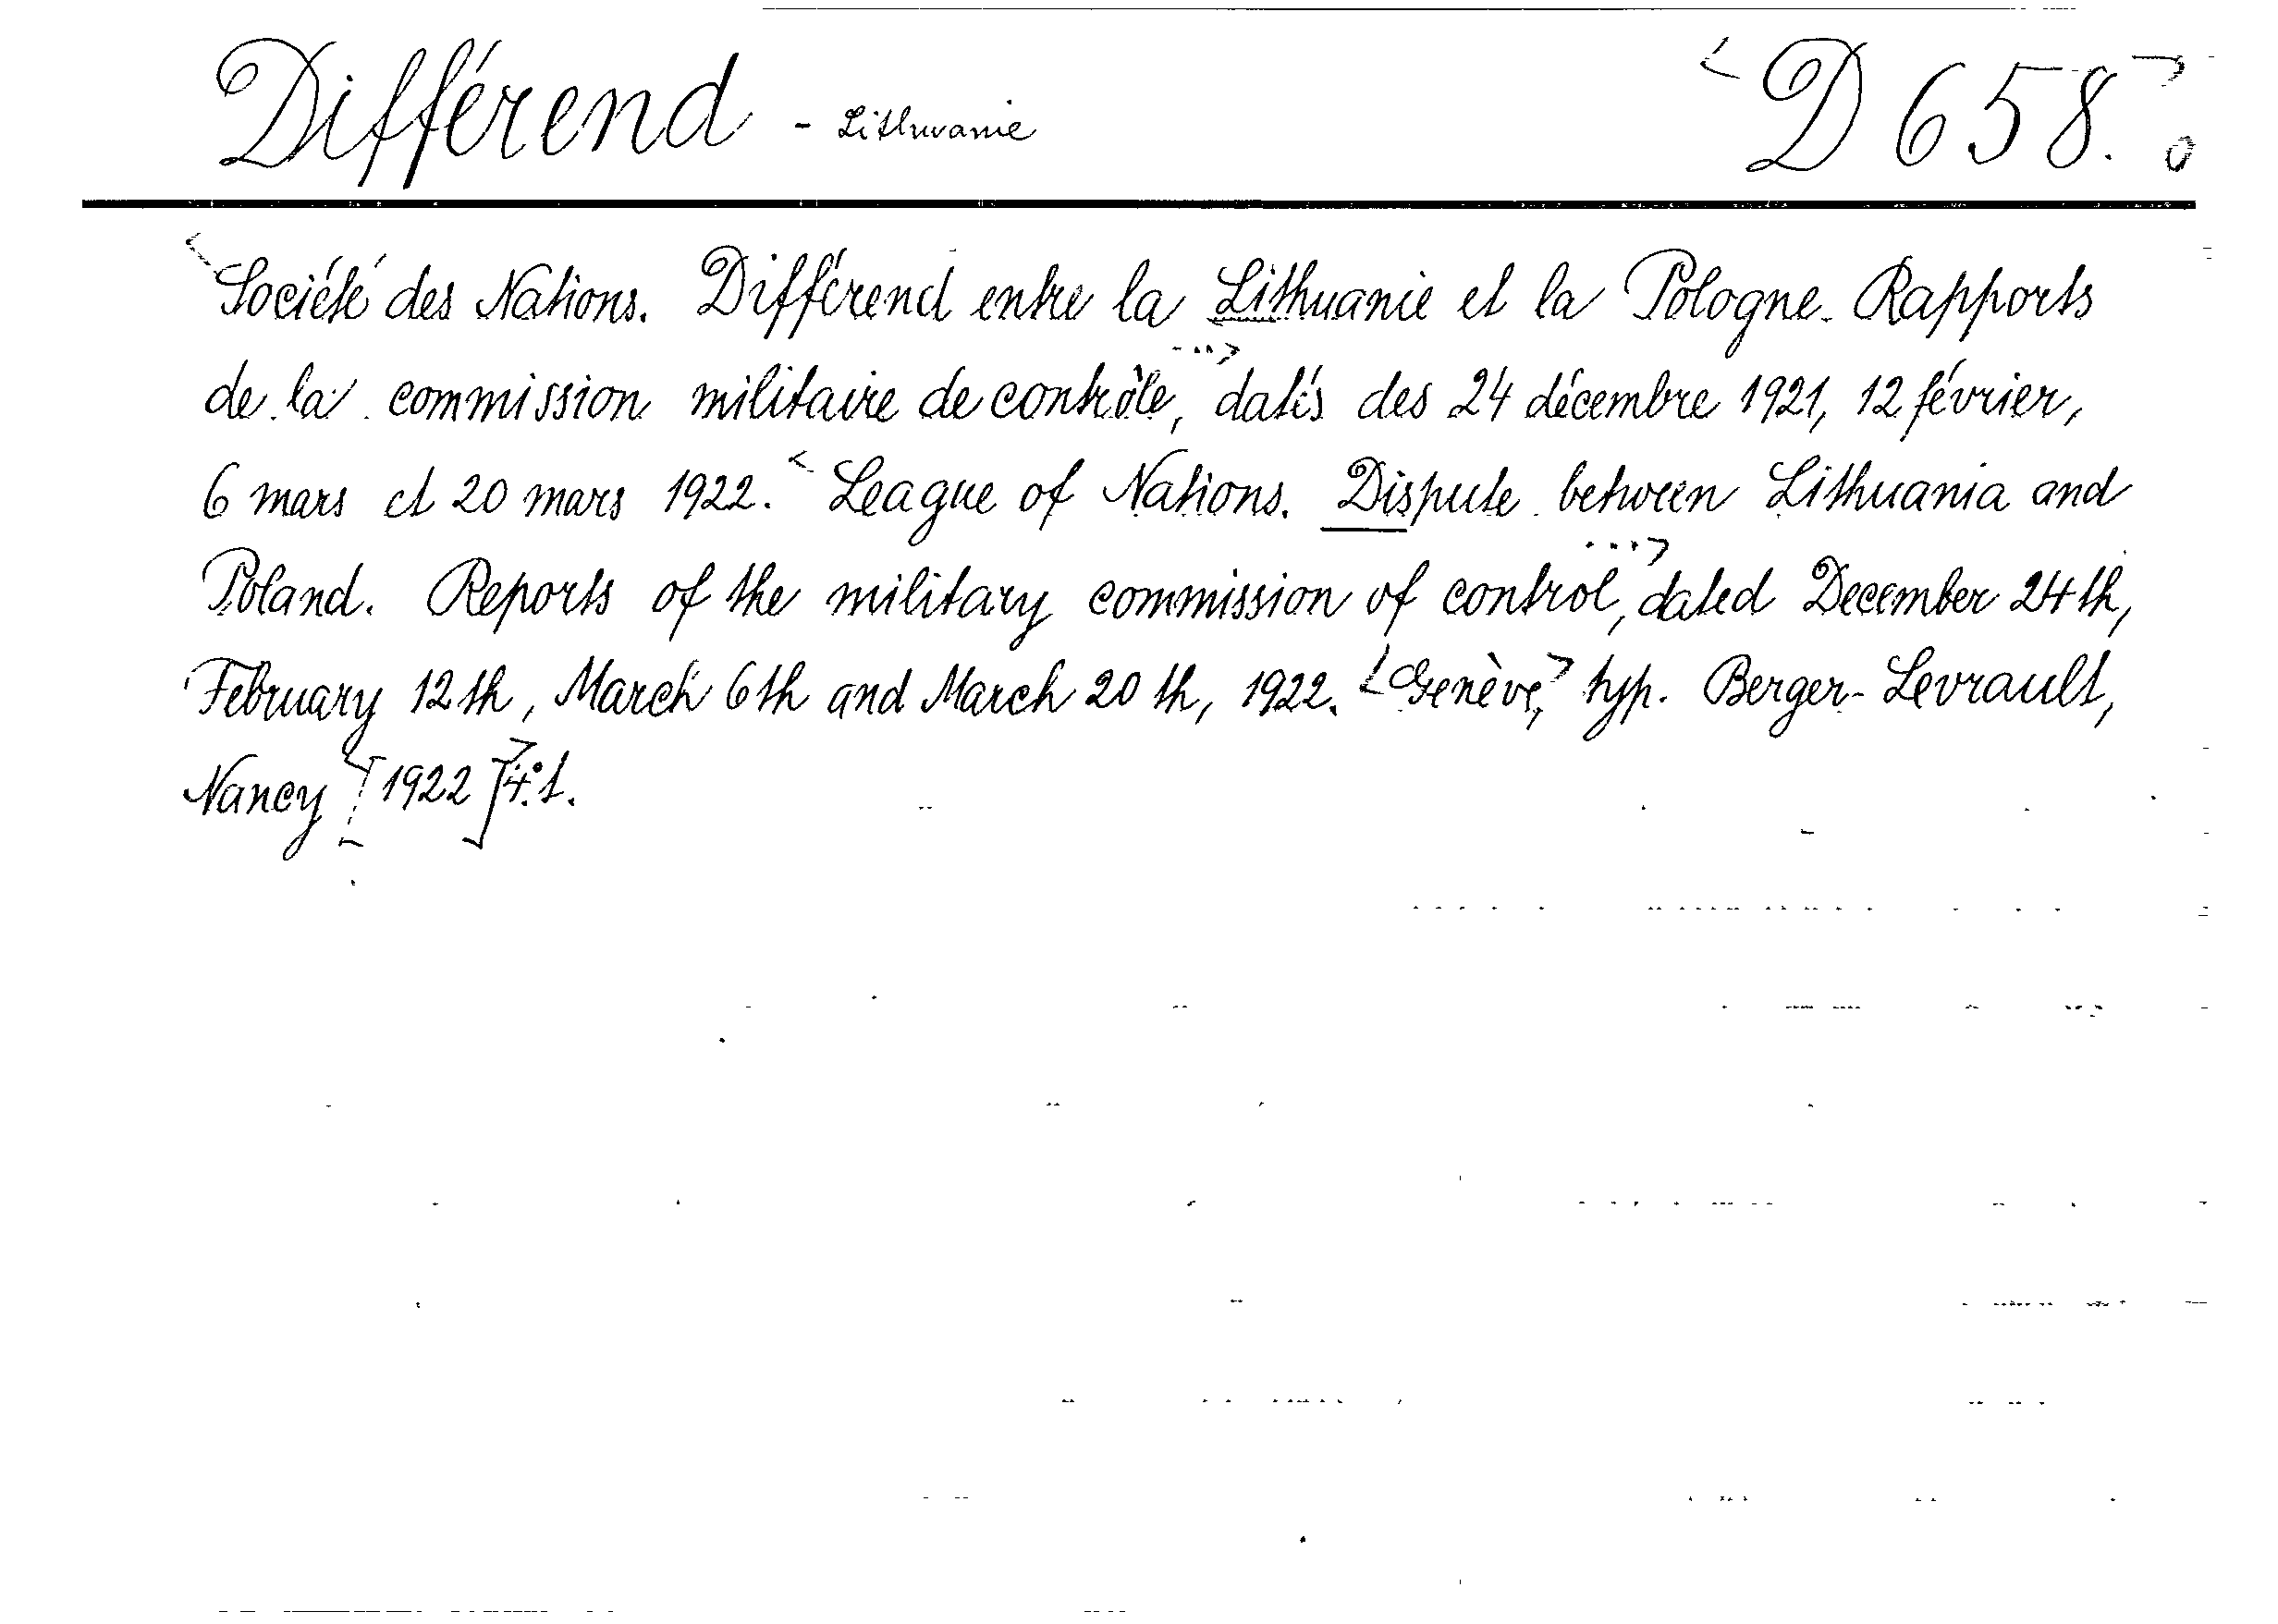 Différend - Lithuanie <D 658.>
<Société des Nations. Différend entre la Lithuanie et la Pologne. Rapports
de la commission militaire de contrôle, ...> datés des 24 décembre 1921, 12 février,
6 mars et 20 mars 1922. < League of Nations. Dispute between Lithuania and
Poland. Reports of the military commission of control, ...> dated December 24th,
February 12th, March 6th and March 20th, 1922. <Genève,> typ. Berger-Levrault,
Nancy <[1922]> 4.° 1.